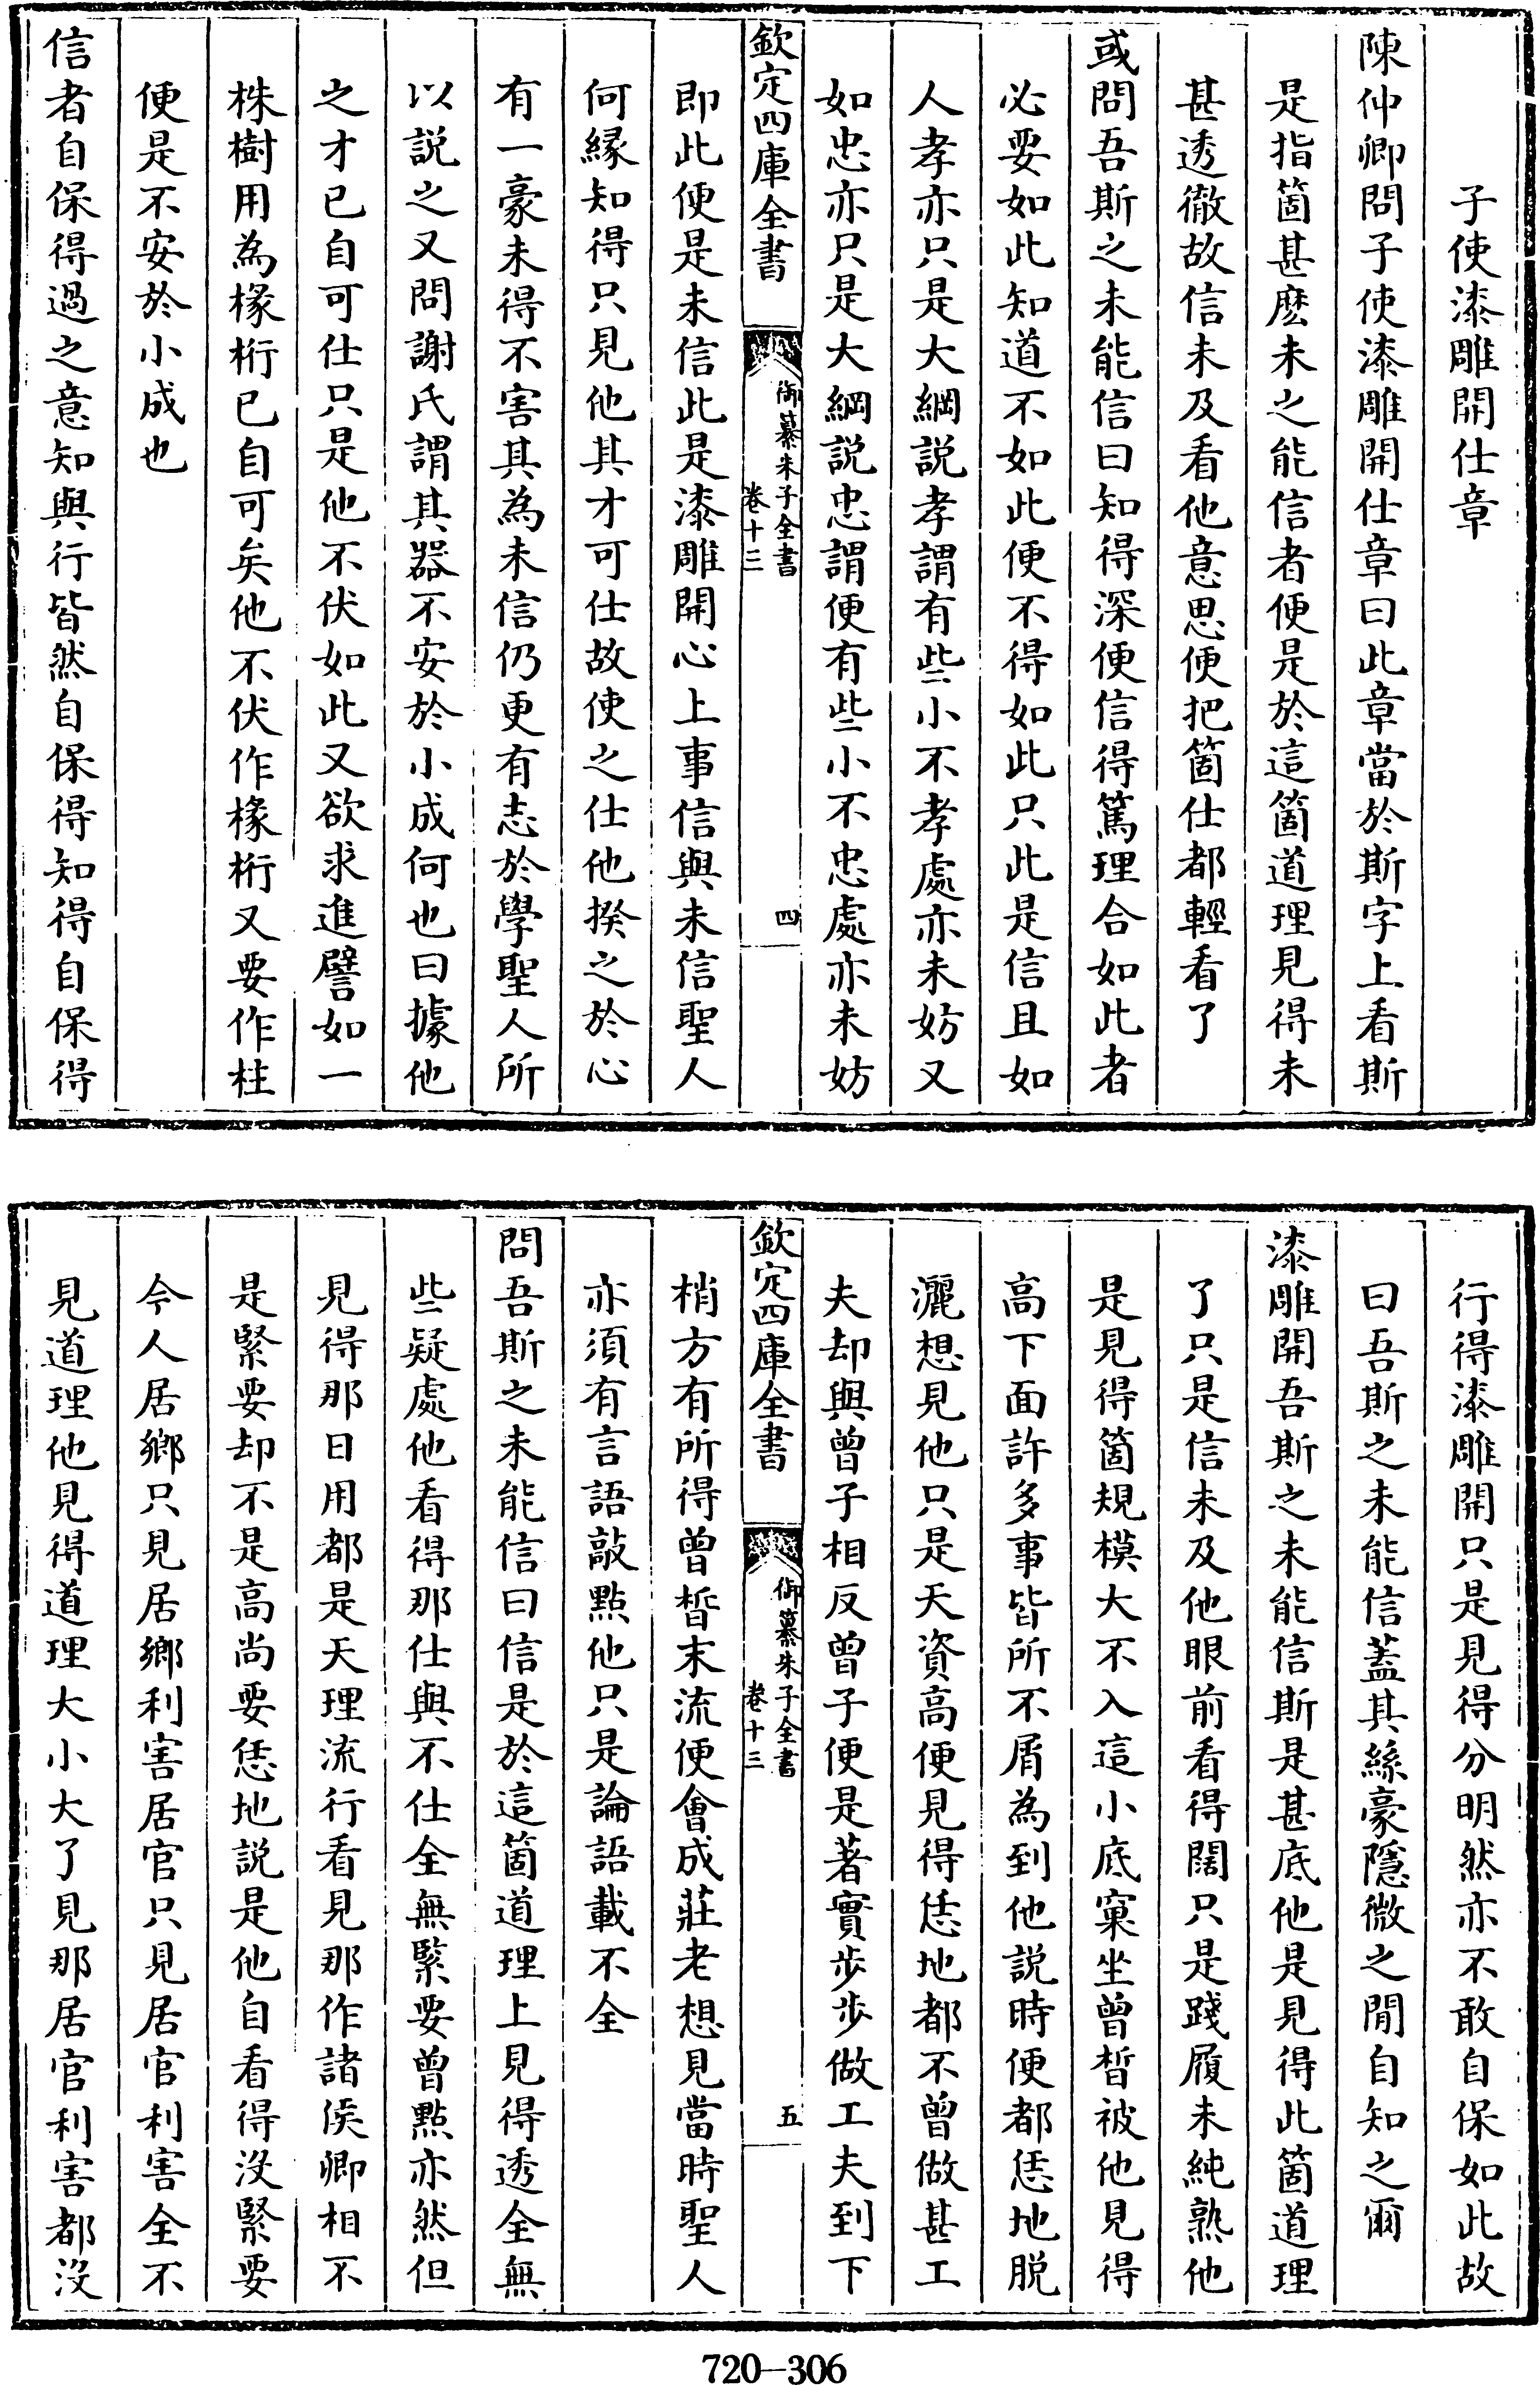 子使漆雕開仕章
陳仲卿問子使漆雕開仕章曰此章當於斯字上看斯
是指箇甚麽未之能信者便是於這箇道理見得未
甚透徹故信未及看他意思便把箇仕都輕看了
或問吾斯之未能信曰知得深便信得篤理合如此者
必要如此知道不如此便不得如此只此是信且如
人孝亦只是大綱説孝謂有些小不孝處亦未妨又
如忠亦只是大綱説忠謂便有些小不忠處亦未妨
欽定四庫全書
御纂朱子全書
卷十三
四
即此便是未信此是漆雕開心上事信與未信聖人
何縁知得只見他其才可仕故使之仕他揆之於心
有一豪未得不害其為未信仍更有志於學聖人所
以説之又問謝氏謂其器不安於小成何也曰據他
之才已自可仕只是他不伏如此又欲求進譬如一
株樹用為椽桁已自可矣他不伏作椽桁又要作柱
便是不安於小成也
信者自保得過之意知與行皆然自保得知得自保得
行得漆雕開只是見得分明然亦不敢自保如此故
曰吾斯之未能信蓋其絲豪隱微之閒自知之爾
漆雕開吾斯之未能信斯是甚底他是見得此箇道理
了只是信未及他眼前看得闊只是踐履未純熟他
是見得箇規模大不入這小底窠坐曾晳被他見得
高下面許多事皆所不屑為到他説時便都恁地脱
灑想見他只是天資高便見得恁地都不曾做甚工
夫却與曾子相反曾子便是著實步步做工夫到下
欽定四庫全書
御纂朱子全書
卷十三
五
梢方有所得曾晳末流便會成莊老想見當時聖人
亦須有言語敲點他只是論語載不全
問吾斯之未能信曰信是於這箇道理上見得透全無
些疑處他看得那仕與不仕全無緊要曾點亦然但
見得那日用都是天理流行看見那作諸侯卿相不
是緊要却不是高尚要恁地説是他自看得沒緊要
今人居鄉只見居鄉利害居官只見居官利害全不
見道理他見得道理大小大了見那居官利害都沒
720-306